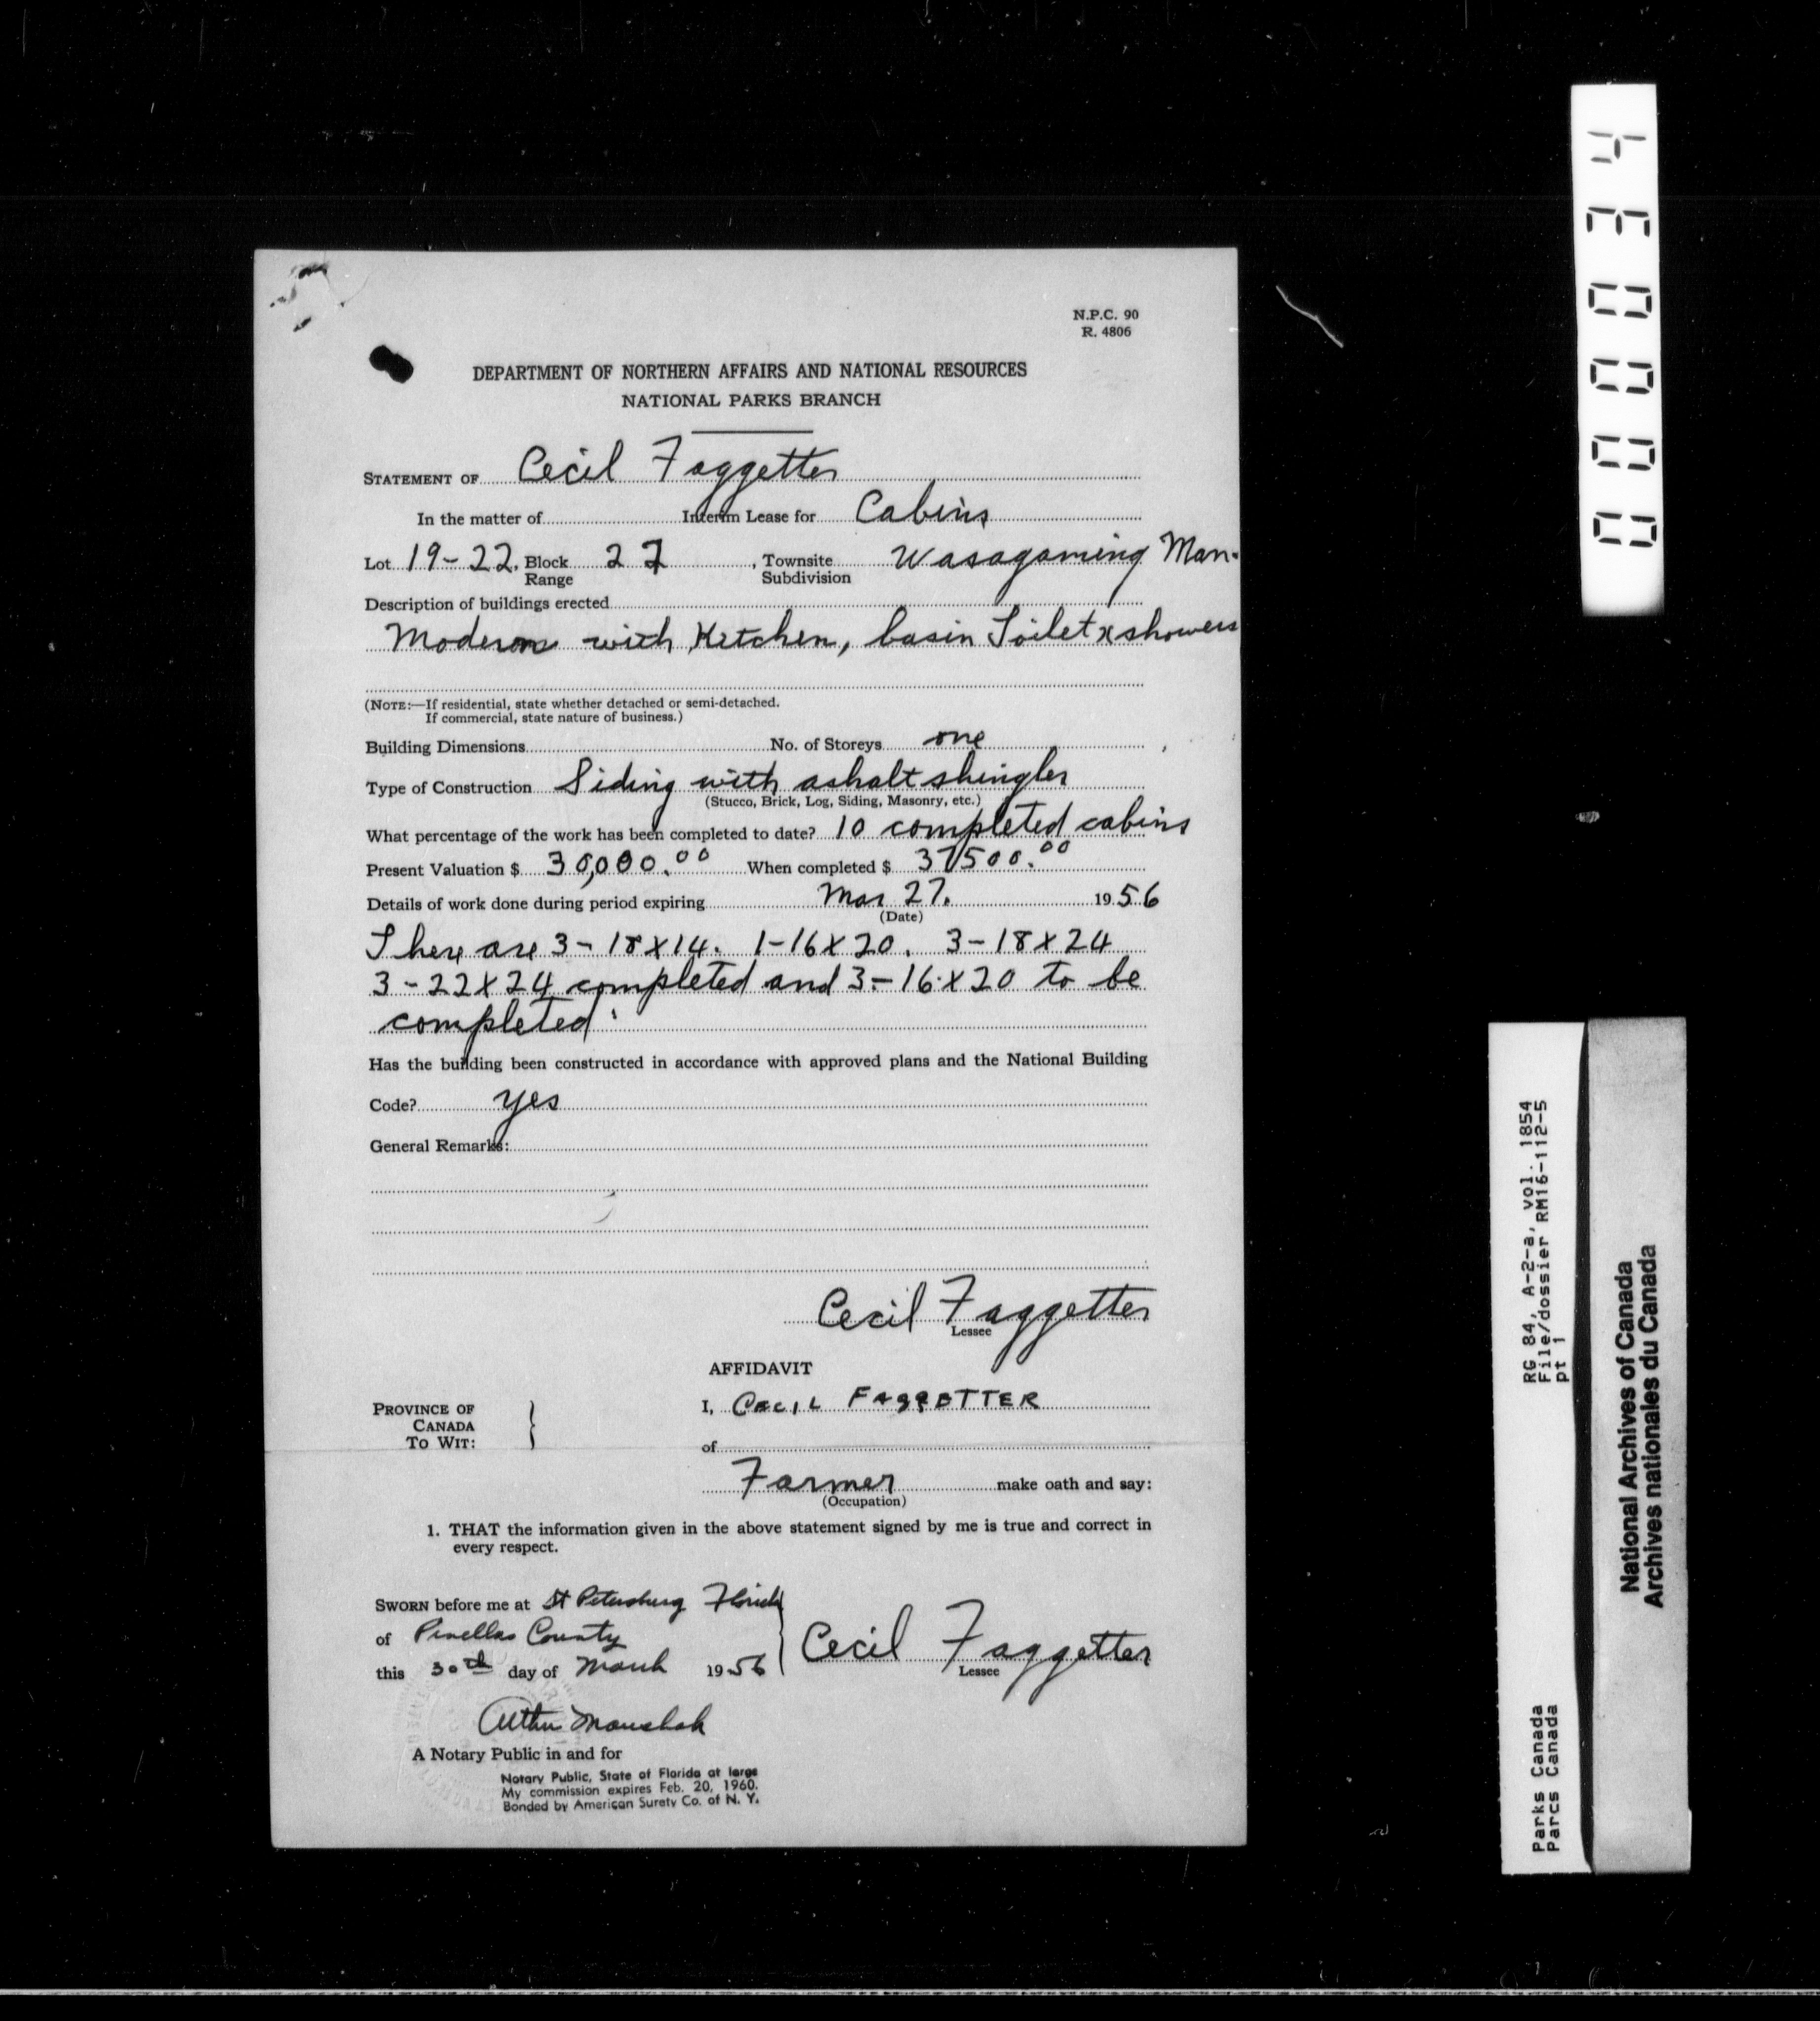 N.P.C. 90
R. 4806
DEPARTMENT OF NORTHERN AFFAIRS AND NATIONAL RESOURCES
NATIONAL PARKS BRANCH
STATEMENT OF Cecil Faggetter
In the matter of Interim Lease for Cabins
Lot 19-22, Block 22, Townsite Wasagaming Man.
Range Subdivision
Description of buildings erected
Modern with Kitchen, basin Toilet x showers
(NOTE:—If residential, state whether detached or semi-detached.
If commercial, state nature of business.)
Building Dimensions No. of Storeys one
Type of Construction Siding with ashalt shingles
(Stucco, Brick, Log, Siding, Masonry, etc.)
What percentage of the work has been completed to date? 10 completed cabins
Present Valuation $ 30,000.00 When completed $ 37500.00
Details of work done during period expiring Mar 27. 1956
(Date)
There are 3-18x14. 1-16x20. 3-18x24
3-22x24 completed and 3-16x20 to be
completed.
Has the building been constructed in accordance with approved plans and the National Building
Code? yes
General Remarks:
Cecil Faggetter
Lessee
AFFIDAVIT
PROVINCE OF
CANADA
TO WIT:
I, CECIL FAGGETTER
of
Farmer make oath and say:
(Occupation)
1. THAT the information given in the above statement signed by me is true and correct in
every respect.
SWORN before me at St Petersburg Florida
of Pinellas County
this 30th day of March 1956
Cecil Faggetter
Lessee
A Notary Public in and for
Notary Public, State of Florida at large
My commission expires Feb. 20, 1960.
Bonded by American Surety Co. of N. Y.
000034
RG 84, A-2-a, vol. 1854
File/dossier RM16-112-5
pt 1
Parks Canada
Parcs Canada
National Archives of Canada
Archives nationales du Canada